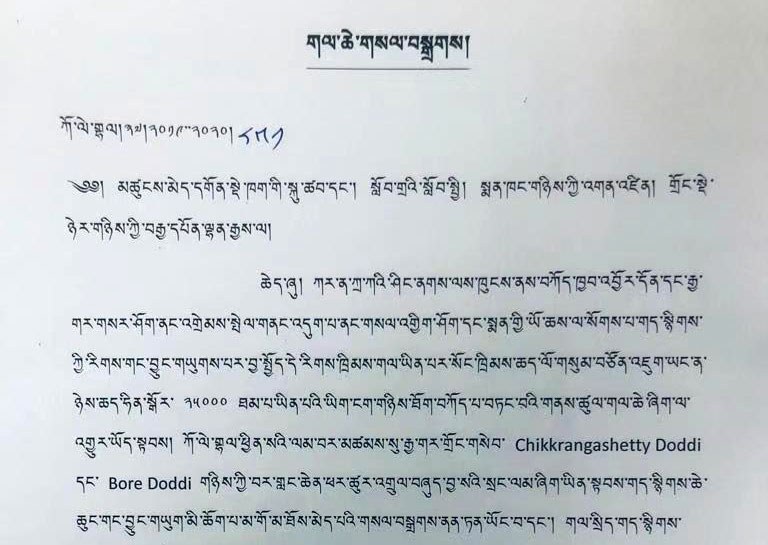 གལ་ཆེ་གསལ་བསྒྲགས།
ཀོ་ལེ་གྷལ།༢༧།༢༠༡༩-༢༠༢༠།
༄༅། མཚུངས་མེད་དགོན་སྡེ་ཁག་གི་སྐུ་ཚབ་དང་། སློབ་གྲའི་སློབ་སྤྱི། སྨན་ཁང་གཉིས་ཀྱི་འགན་འཛིན། གྲོང་སྡེ་
ཉེར་གཉིས་ཀྱི་བརྒྱ་དཔོན་ལྷན་རྒྱས་ལ།
ཆེད་ཞུ། ཀར་ན་ཀྲ་ཀའི་ཤིང་ནགས་ལས་ཁུངས་ནས་བཀོད་ཁྱབ་འབྱོར་དོན་དང་རྒྱ་
གར་གསར་ཤོག་ནང་འགྲེམས་སྤེལ་གནང་འདུག་པ་ནང་གསལ་འགྱིག་ཤོག་དང་སྨན་གྱི་ཡོ་ཆས་ལ་སོགས་པ་གད་སྙིགས་
ཀྱི་རིགས་གང་བྱུང་གཡུགས་པར་བྱ་སྤྱོད་དེ་རིགས་ཁྲིམས་གལ་ཡིན་པར་སོང་ཁྲིམས་ཆད་ལོ་གསུམ་བཙོན་འཇུག་ཡང་ན་
ཉེས་ཆད་ཧིན་སྒོར་ ༢༥༠༠༠ ཐམ་པ་ཡིན་པའི་ཡིག་ངག་གཉིས་ཐོག་བཀོད་པ་བཏང་བའི་གནས་ཚུལ་གལ་ཆེ་ཞིག་ལ་
འགྱུར་ཡོད་སྟབས། ཀོ་ལེ་གྷལ་ཕྱིན་སའི་ལམ་བར་མཚམས་སུ་རྒྱ་གར་གྲོང་གསེབ་ Chikkrangashetty Doddi
དང་ Bore Doddi གཉིས་ཀྱི་བར་གླང་ཆེན་ཕར་ཚུར་འགྲུལ་བཞུད་བྱ་སའི་སྲང་ལམ་ཞིག་ཡིན་སྟབས་གད་སྙིགས་ཆེ་
ཆུང་གང་བྱུང་གཡུག་མི་ཆོག་པ་མ་གོ་མ་ཐོས་མེད་པའི་གསལ་བསྒྲགས་ནན་ཏན་ཡོང་བ་དང་། གལ་སྲིད་གད་སྙིགས་